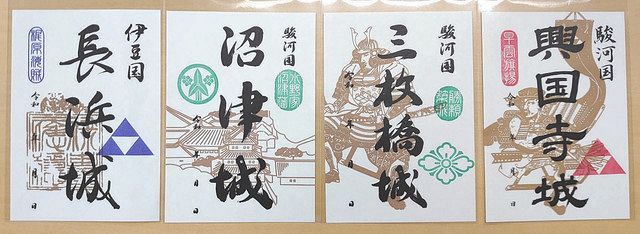 伊豆国
長浜城
令和 年 月 日
駿河国
沼津城
水野家
沼津藩
令和 年 月 日
駿河国
三枚橋城
令和 年 月 日
駿河国
興国寺城
早雲旗揚
令和 年 月 日